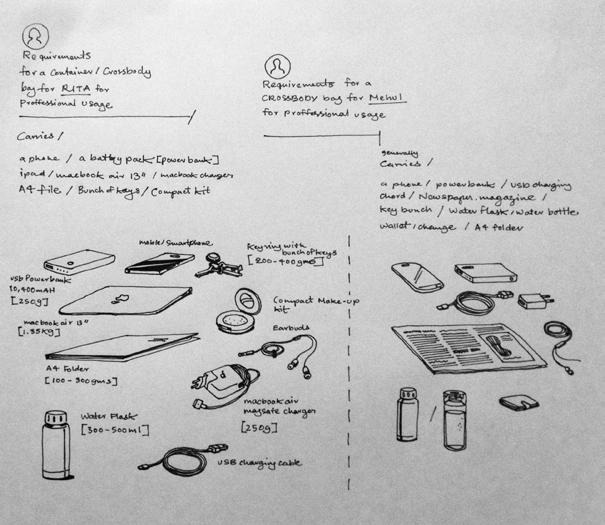 Requirements
for a Container/Crossbody
bag for RITA for
Proffessional usage
Carries/
a phone / a battery pack [power bank]
ipad/macbook air 13"/ macbook charger
A4 file / Bunch of keys / Compact kit
Requirements for a
CROSSBODY bag for Mehul
for proffessional usage
generally
Carries /
a phone / powerbank / usb charging
chord / Newspaper.magazine /
key bunch / Water flask/water bottle
wallet/change / A4 folder
usb Powerbank
10,400mAH
[250g]
mobile/Smartphone
Keyring with
bunch of keys
[200-400gms]
macbook air 13"
[1.35Kg]
Compact Make-up
kit
Earbuds
A4 Folder
[100-300gms]
macbook air
magsafe charger
[250g]
Water Flask
[300-500ml]
USB charging cable